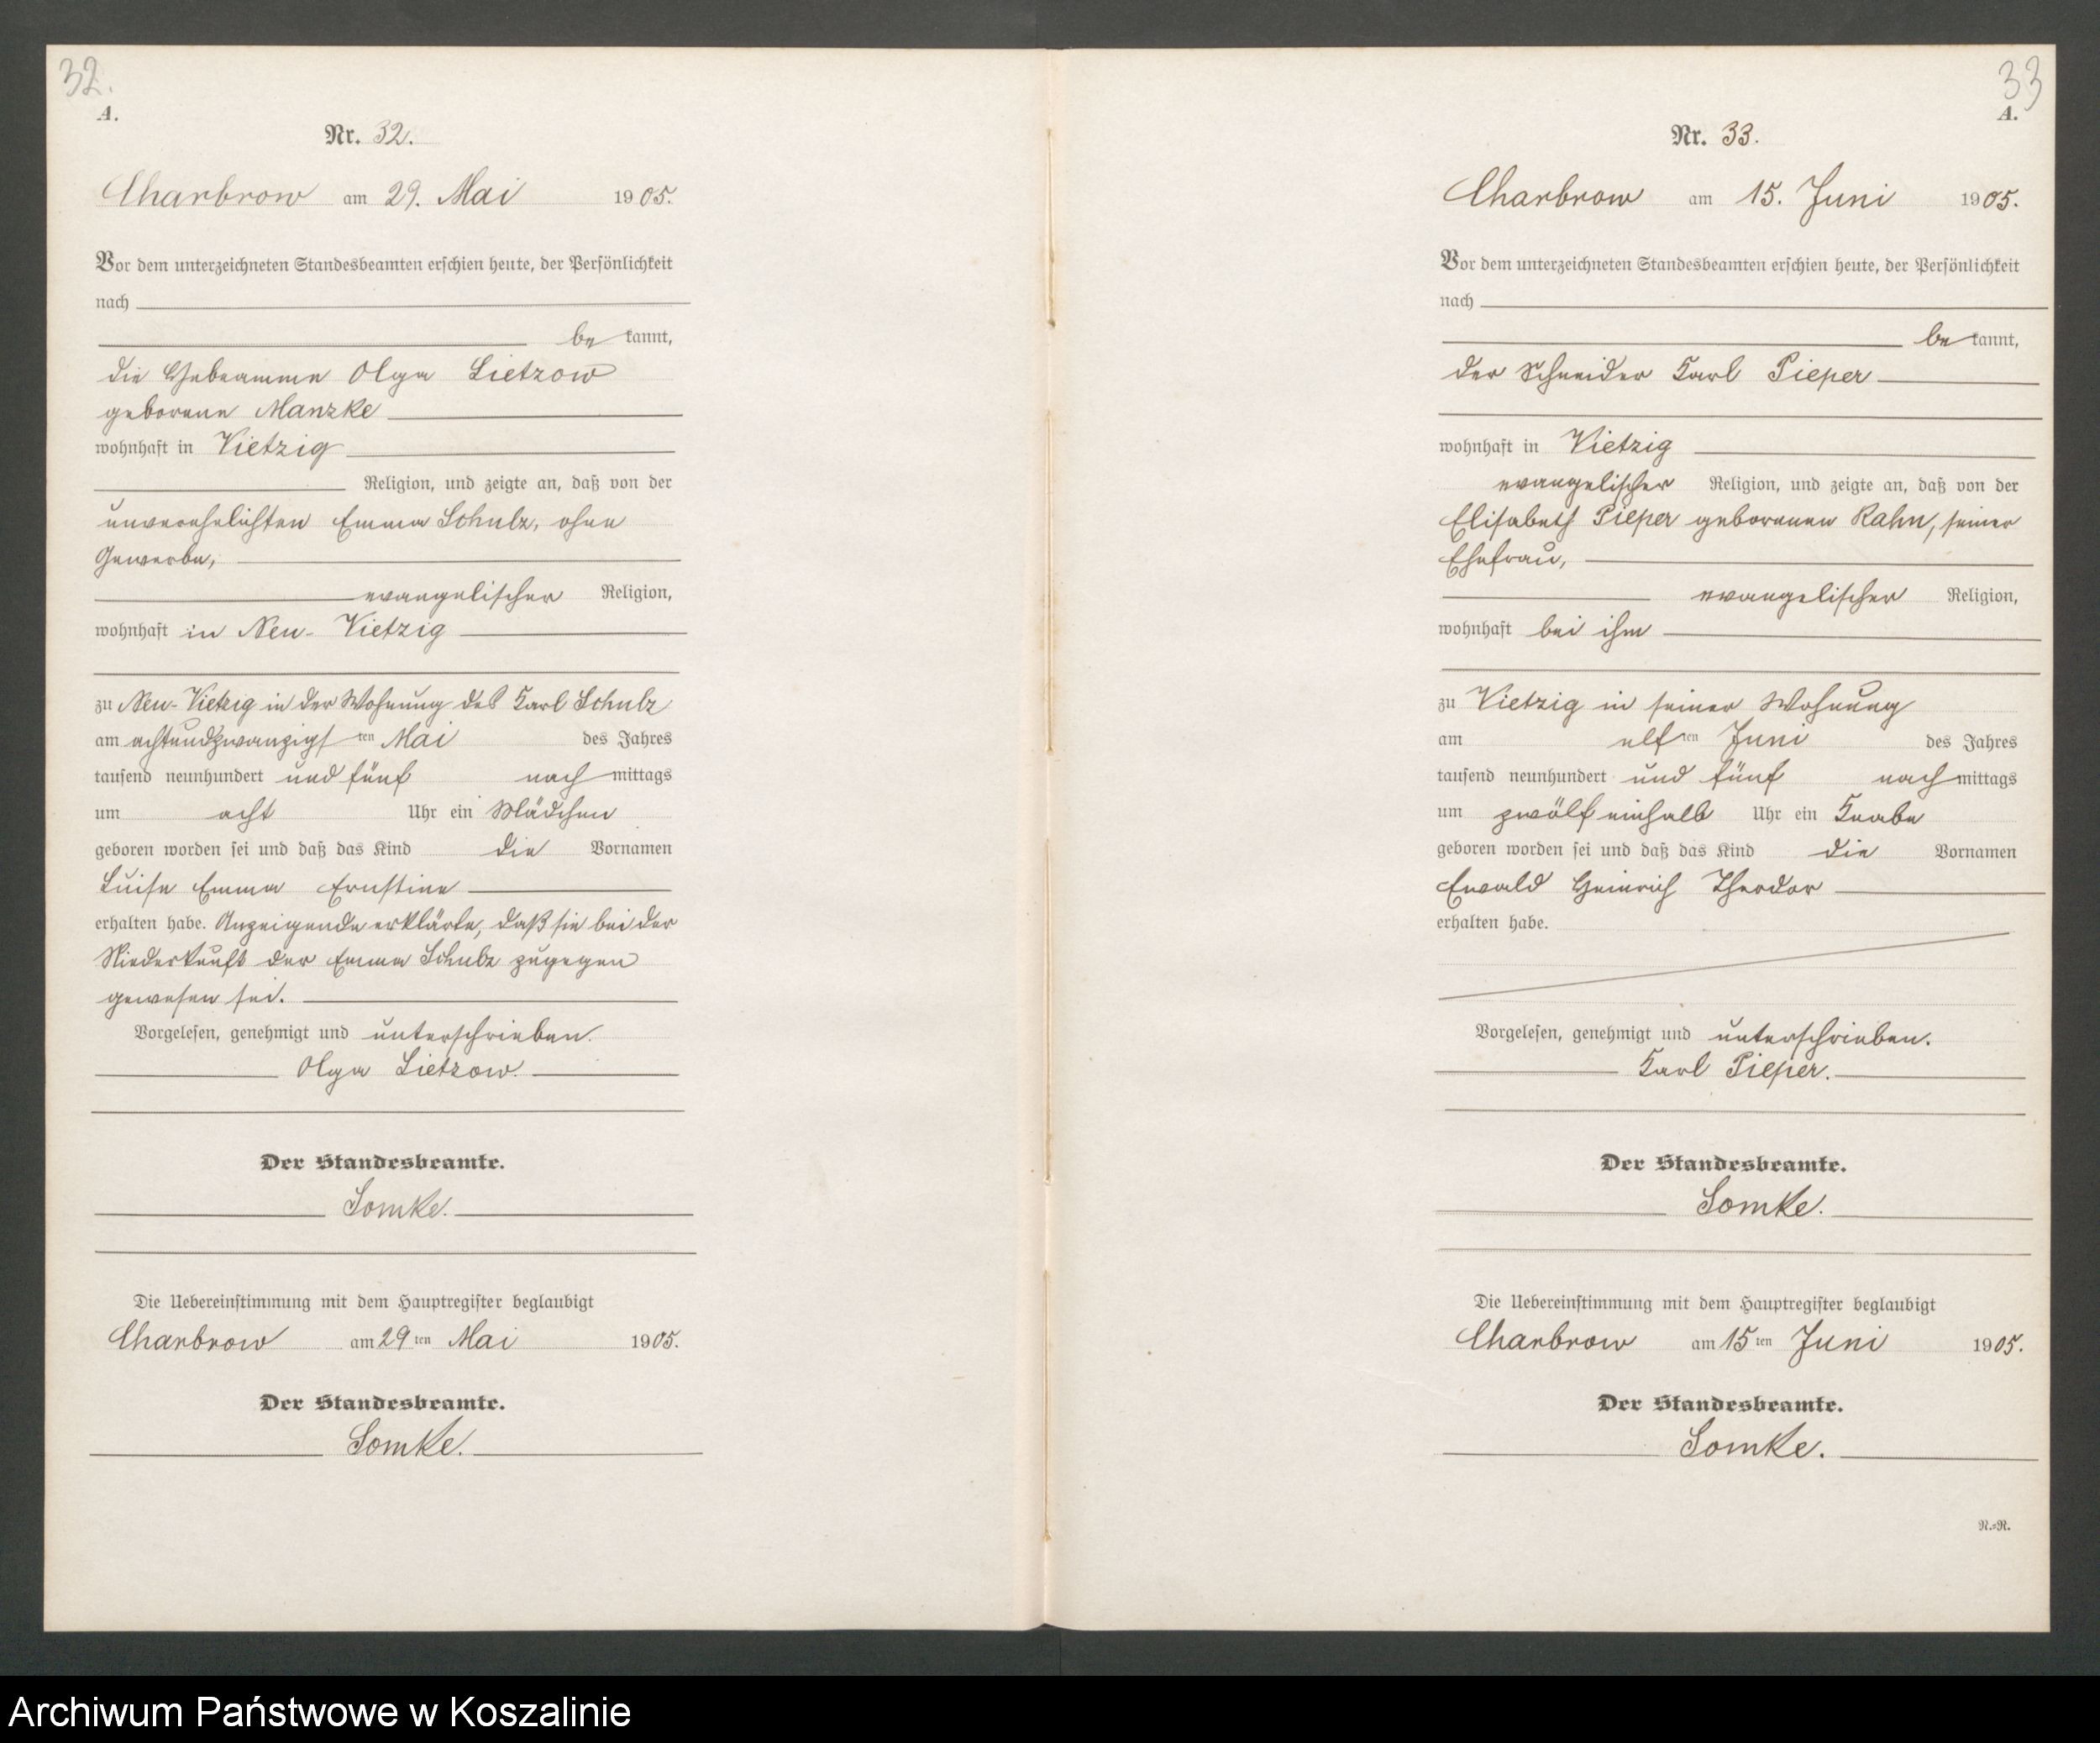 32.
A.
Nr. 32.
Charbrow am 29. Mai 1905.
Vor dem unterzeichneten Standesbeamten erschien heute, der Persönlichkeit
nach
be kannt,
die Hebeamme Olga Lietzow
geborene Manzke
wohnhaft in Vietzig
Religion, und zeigte an, daß von der
unverehelichten Emma Schulz, ohne
Gewerbe,
evangelischer Religion,
wohnhaft in Neu-Vietzig
zu Neu-Vietzig in der Wohnung des Karl Schulz
am achtundzwanzigsten Mai des Jahres
tausend neunhundert und fünf nach mittags
um acht Uhr ein Mädchen
geboren worden sei und daß das Kind die Vornamen
Luise Emma Ernstine
erhalten habe. Anzeigende erklärte, daß sie bei der
Niederkunft der Emma Schulz zugegen
gewesen sei.
Vorgelesen, genehmigt und unterschrieben.
Olga Lietzow.
Der Standesbeamte.
Somke.
Die Uebereinstimmung mit dem Hauptregister beglaubigt
Charbrow am 29ten Mai 1905.
Der Standesbeamte.
Somke.
33
A.
Nr. 33.
Charbrow am 15. Juni 1905.
Vor dem unterzeichneten Standesbeamten erschien heute, der Persönlichkeit
nach
be kannt,
der Schneider Karl Pieper
wohnhaft in Vietzig
evangelischer Religion, und zeigte an, daß von der
Elisabeth Pieper geborenen Rahn, seiner
Ehefrau,
evangelischer Religion,
wohnhaft bei ihm
zu Vietzig in seiner Wohnung
am elften Juni des Jahres
tausend neunhundert und fünf nach mittags
um zwölf einhalb Uhr ein Knabe
geboren worden sei und daß das Kind die Vornamen
Ewald Heinrich Theodor
erhalten habe.
Vorgelesen, genehmigt und unterschrieben.
Karl Pieper.
Der Standesbeamte.
Somke.
Die Uebereinstimmung mit dem Hauptregister beglaubigt
Charbrow am 15ten Juni 1905.
Der Standesbeamte.
Somke.
R.-R.
Archiwum Państwowe w Koszalinie